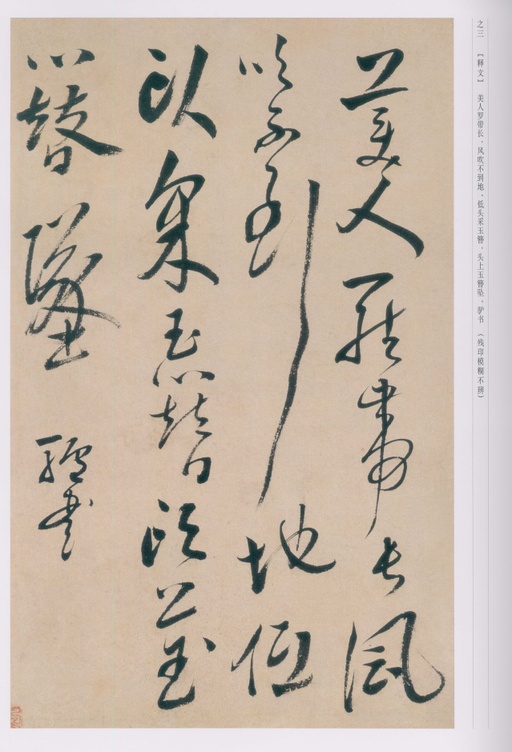 之三 【释文】 美人罗带长，风吹不到地，低头采玉簪，头上玉簪坠。驴书 （残印模糊不辨）
美人羅帶長風
吹不到地低
頭采玉簪頭上玉
簪墜 驢書